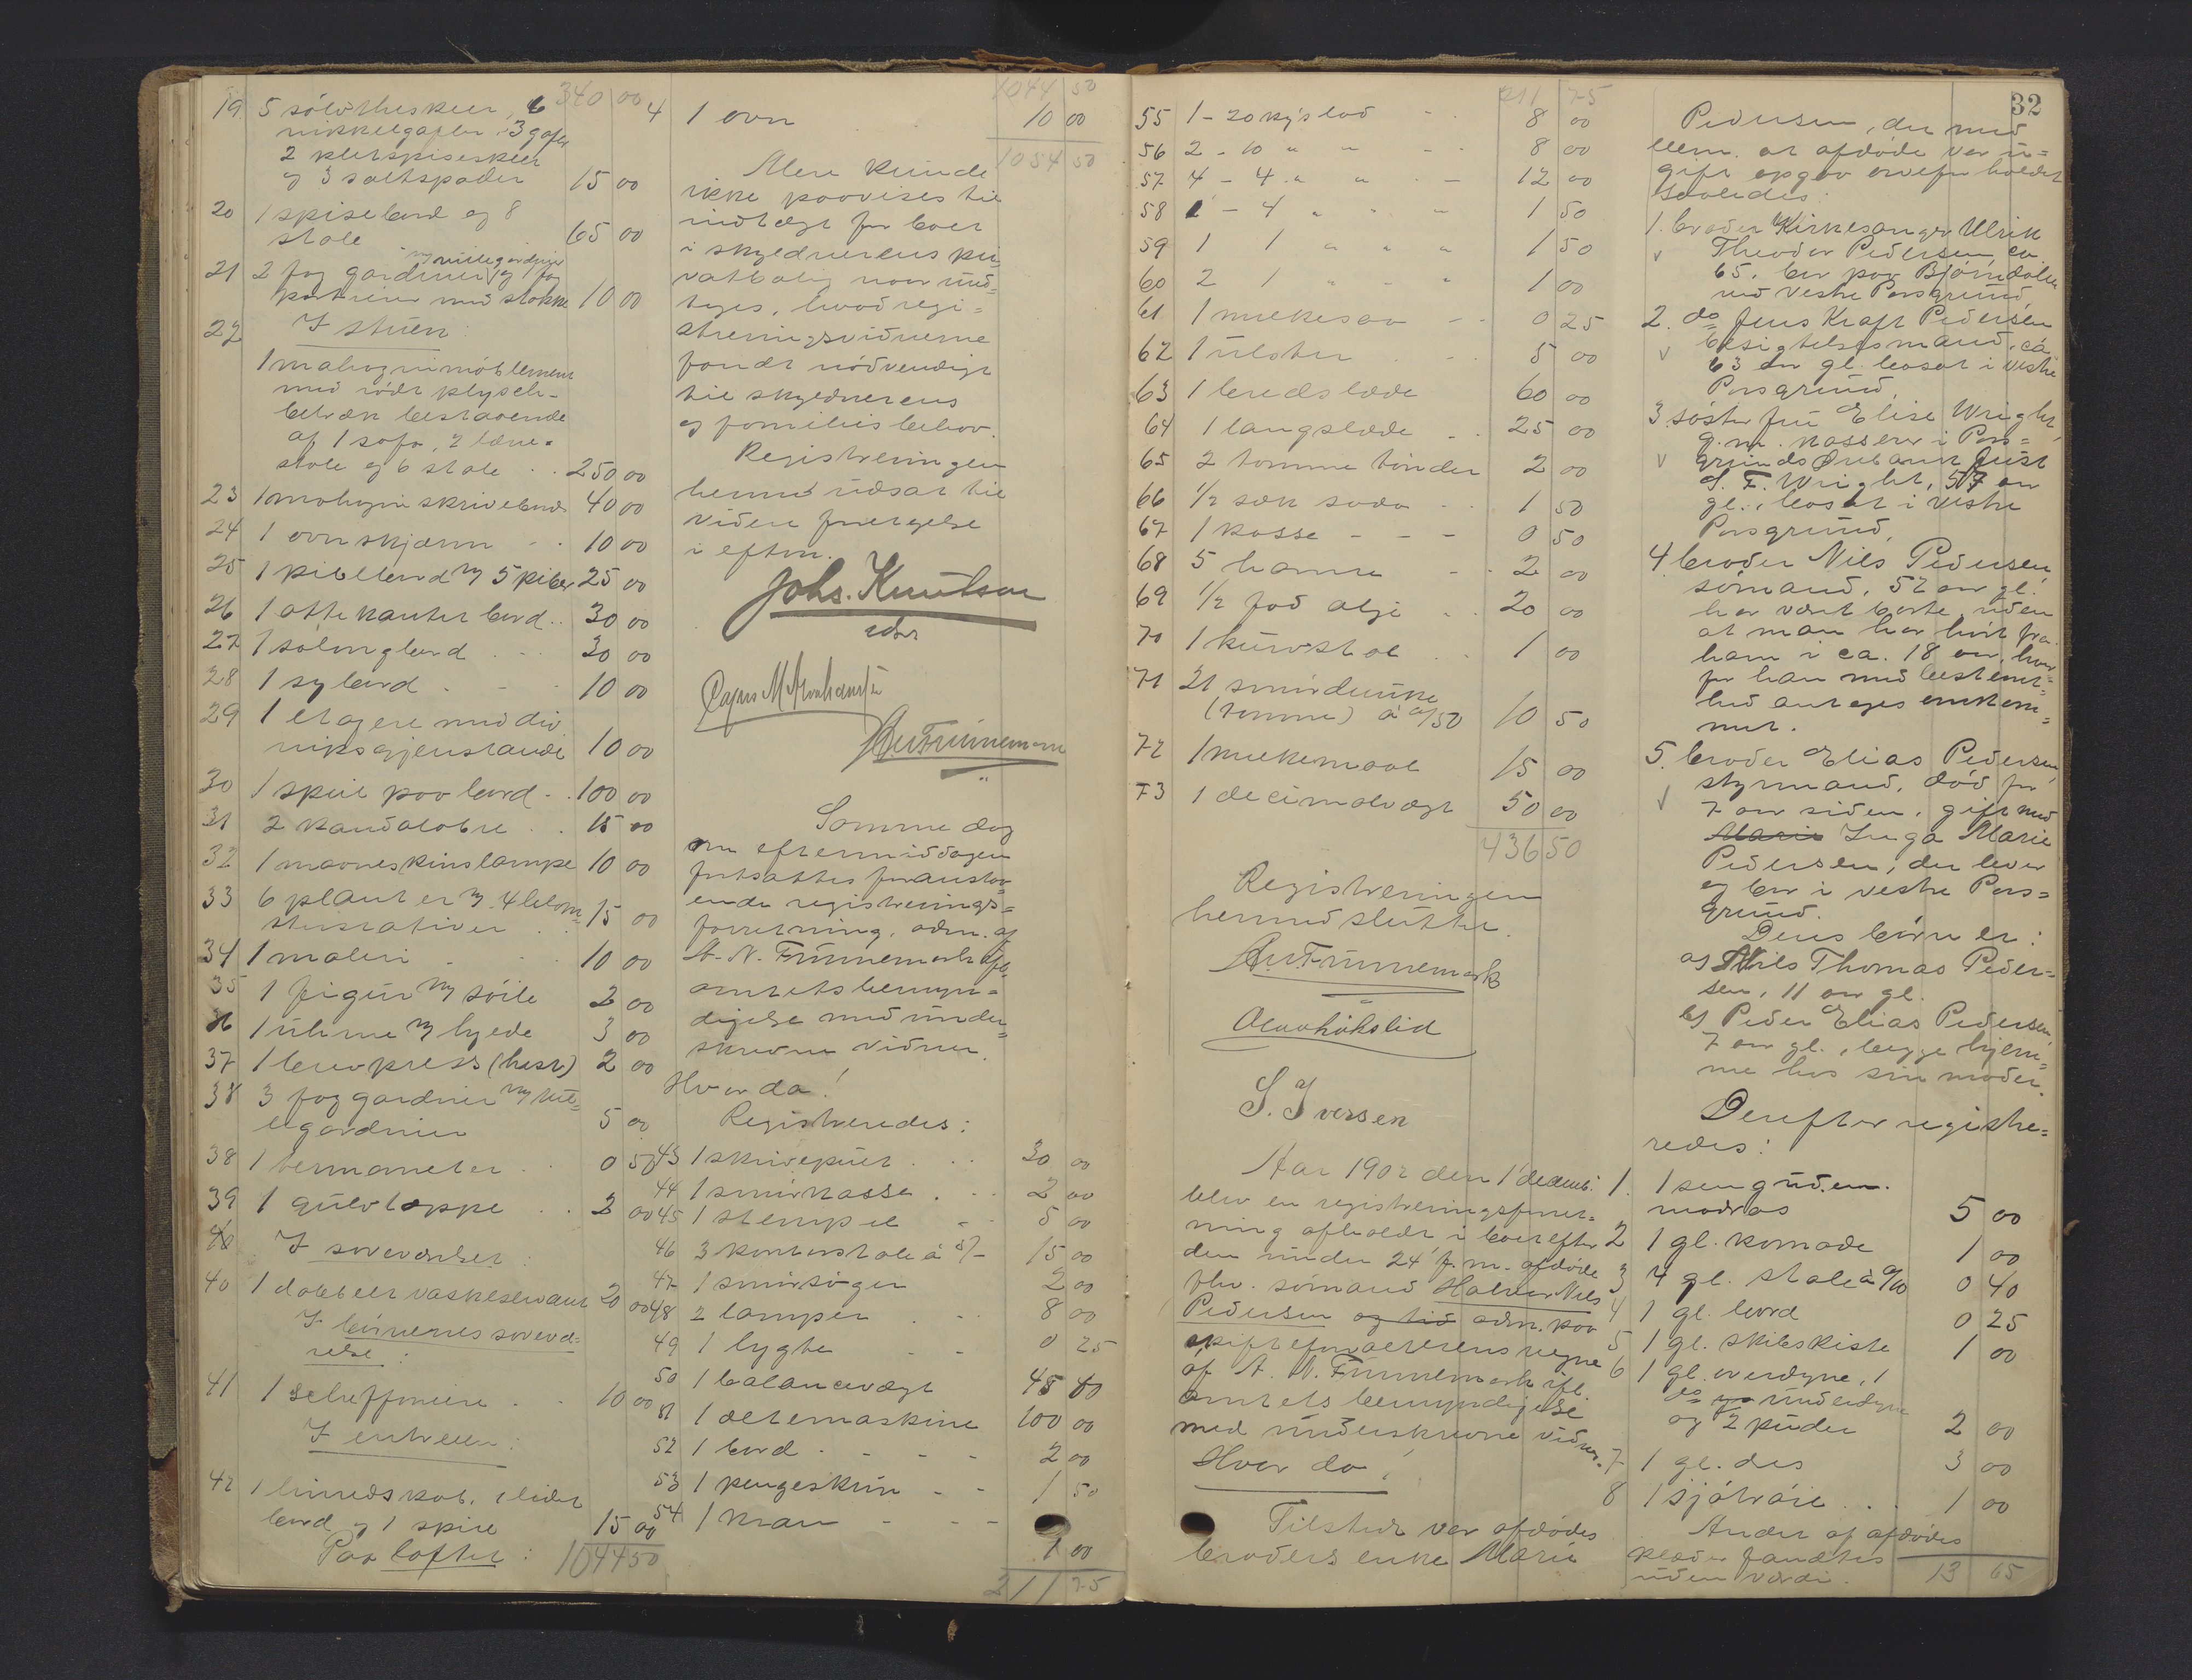 340 00
19 5 sölvtheskeer, 6
nikkelgafler, 3 gafler
2 pletspiseskeer
og 3 saltspader 15 00
20 1 spisebord og 8
stole 65 00
m/ rullegardiner
21 2 fag gardiner og 1 fag
portierer med stokke 10 00
22 I stuen
1 mahognimöblement
med rödt plysch-
betræk bestaaende
af 1 sofa, 2 læne-
stole og 6 stole . . 250 00
23 1 mahogni skrivebord 40 00
24 1 ovnskjærm - . 10 00
25 1 pibebord m/ 5 piber 25 00
26 1 ottekantet bord . . 30 00
27 1 salongbord . . . 30 00
28 1 sybord . - - 10 00
29 1 etagere med div
niksgjenstande 10 00
30 1 speil paa bord - . 100 00
31 2 kandelabre . . 15 00
32 1 maaneskinslampe 10 00
33 6 planter m/ 4 blom-
sterstativer . . 15 00
34 1 maleri - . . 10 00
35 1 figur m/ söile 2 00
36 1 uhrne m/ hyede 3 00
37 1 brevpress (hest) 2 00
38 3 fag gardiner m/ rul-
legardiner 5 00
38 1 termometer . . 0 50
39 1 gulvtæppe . . 2 00
40 I soveværelset :
40 1 dobbelt vaskeservant 20 00
I börnenes sovevæ-
relse :
41 1 scheffoniere . . 10 00
I entreen :
42 1 linnedskab, 1 lidet
bord og 1 speil 15 00
Paa loftet : 1044 50
1044 50
4 1 ovn . . 10 00
1054 50
Mere kunde
ikke paavises til
indtægt for boet
i skyldnerens pri-
vatbolig naar und-
tages, hvad regi-
streringsvidnerne
fandt nödvendigt
til skyldnerens
og familiens behov.
Registreringen
hermed udsat til
videre foretagelse
i efterm.
Johs. Knutson
A N Funnemark
Samme dag
om eftermiddagen
fortsattes foranstaa-
ende registrerings-
forretning, adm. af
A. N. Funnemark ifl.
amtets bemyn-
digelse med under-
skrevne vidner.
Hvor da !
Registreredes :
43 1 skrivepult . . . 30 00
44 1 smörkasse . . . 2 00
45 1 stempel - - 5 00
46 3 kontorstole à 5/- 15 00
47 1 smörsöger 2 00
48 2 lamper . . . 8 00
49 1 lygte - - 0 25
50 1 balancevægt 45 00
51 1 æltemaskine 100 00
52 1 bord . - - - 2 00
53 1 pengeskrin - - 1 50
54 1 kran - - -
1 00
211 75
32
211 75
55 1 - 20 kg's lod - . 8 00
56 2 - 10 " " - - 8 00
57 4 - 4 " " - - 12 00
58 1 - 4 " " - 1 50
59 1 1 " " " 1 50
60 2 1 " " " 1 00
61 1 melkesav - - 0 25
62 1 ulster . . . 5 00
63 1 bredslæde 60 00
64 1 langslæde . . 25 00
65 2 tomme tönder 2 00
66 1/2 sæk soda . . 1 50
67 1 kasse - - - 0 50
68 5 hamre - . 2 00
69 1/2 fad olje . . 20 00
70 1 kurvstol . . 1 00
71 21 smördunke
(tomme) à 0/50 10 50
72 1 melkemaal 15 00
73 1 decimalvægt 50 00
436 50
Registreringen
hermed sluttet.
A. N. Funnemark
S. Iversen
Aar 1902 den 1 decemb.
blev en registreringsforret-
ning afholdt i boet efter
den under 24 f. m. afdöde
fhv. sömand Halvor Nils
Pedersen og tid adm. paa
skifteforvalterens vegne
af A. N. Funnemark ifl.
amtets bemyndigelse
med underskrevne vidner.
Hvor da !
Tilstede var afdödes
broders enke Marie
Pedersen, der med
dem. at afdöde var u-
gift opgav arveforholdet
saaledes :
1. broder Kirkesanger Ulrik
Theodor Pedersen, ca
65, bor paa Björndalen
ved Vestre Porsgrund,
2. do Jens Kraft Pedersen
besigtelsesmand, ca
63 aar gl. bosat i Vestre
Porsgrund,
3. söster fru Elise Wright,
g. m. kasserer i Pors-
grunds Ørebank Just
S. F. Wright, 57 aar
gl., bosat i Vestre
Porsgrund,
4. broder Nils Pedersen,
sömand, 52 aar gl.
har været borte uden
at man har hört fra
ham i ca. 18 aar, hvor
for han med bestemt-
hed antages omkom-
met.
5. broder Elias Pedersen,
styrmand, död for
7 aar siden, gift med
Marie Inga Marie
Pedersen, der lever
og bor i Vestre Pors-
grund.
Deres börn er :
a) Nils Thomas Peder-
sen, 11 aar gl.
b) Peder Elias Pedersen,
7 aar gl., begge hjem-
me hos sin moder.
Derefter registre-
redes :
1. 1 seng uden
madras 5 00
2 1 gl. komode 1 00
3 4 gl. stole à 0/10 0 40
4 1 gl. bord 0 25
5 1 gl. skibskiste 1 00
6 1 gl. overdyne, 1
do underdyne
og 2 puder 2 00
7 1 gl. do 3 00
8 1 sjötröie . . . 1 00
Andet af afdödes
klæder fandtes
uden værdi. 13 65